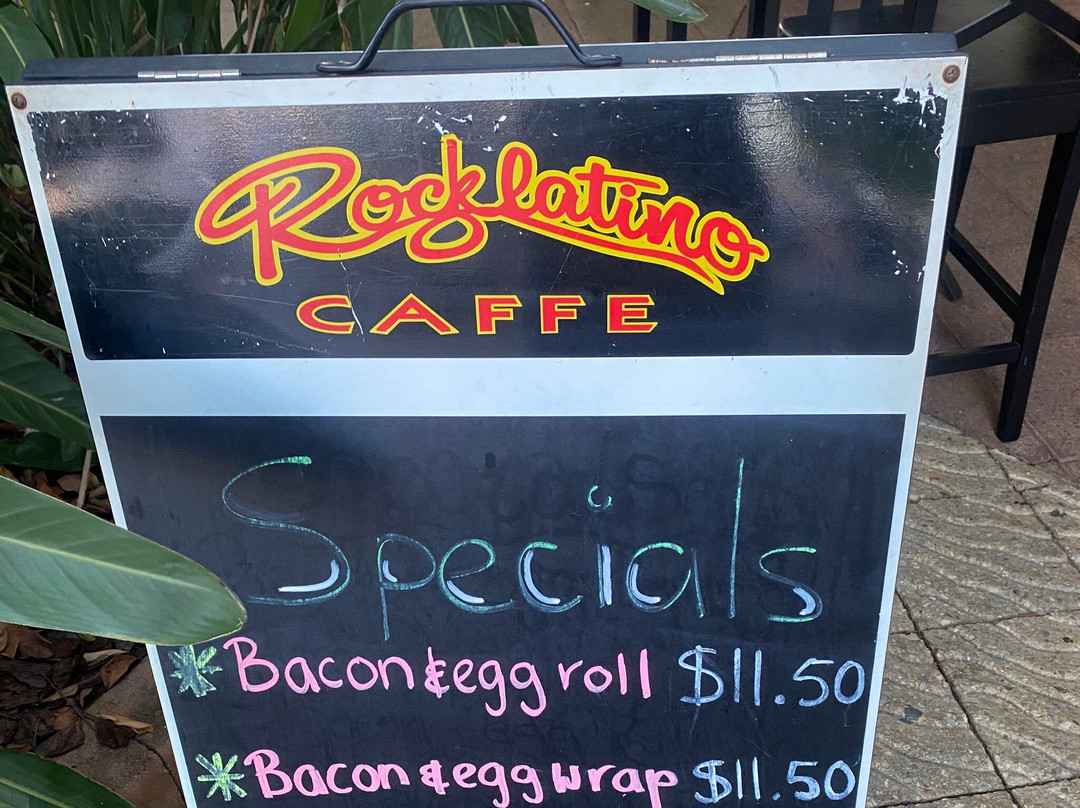 Rocklatino
CAFFE
Specials
* Bacon & egg roll $11.50
* Bacon & egg wrap $11.50